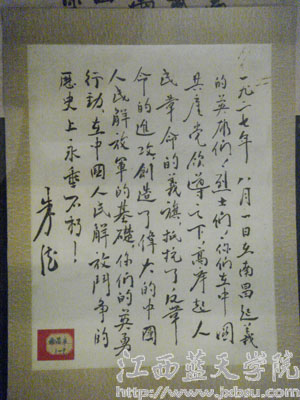 一九二七年八月一日在南昌起義
的英雄们、烈士们！你们在中國
共產党领導之下，高舉起人
民革命的義旗抵抗了反革
命的進攻創造了偉大的中國
人民解放軍的基礎。你们的英勇
行动，在中国人民解放鬥争的
歷史上永垂不朽！
朱德
江西蓝天学院
http://www.jxbsu.com/